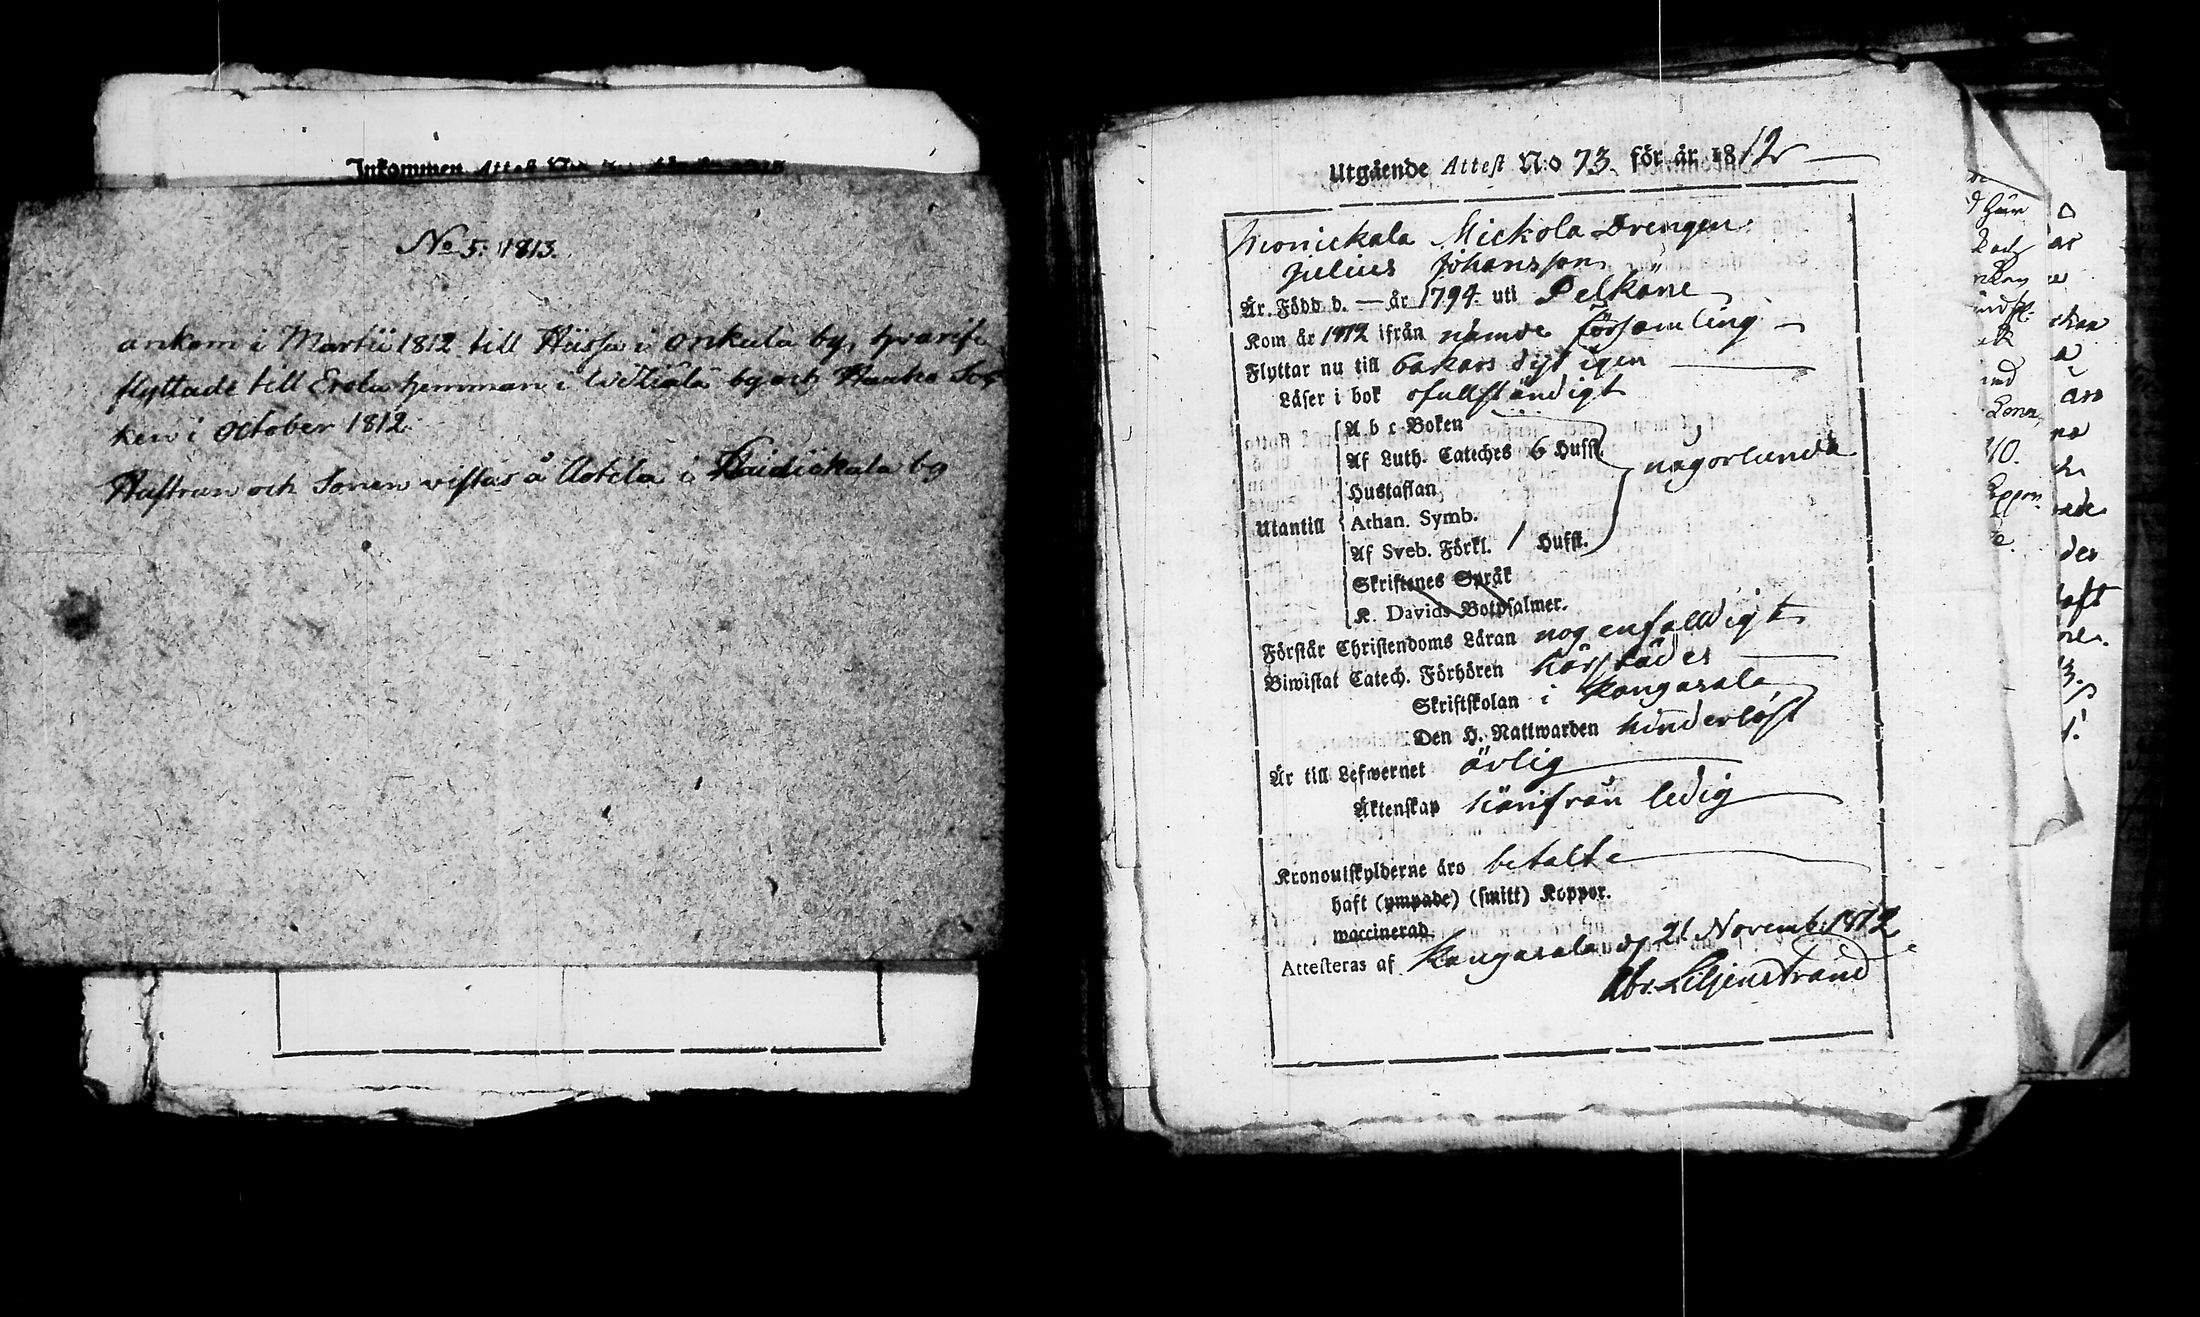 Inkommen Attest
No 5. 1813.
ankom i Martii 1812 till Hiissa i Onkala by, hvarifr
flyttade till Erola hemman i by och Hauho Soc
ken i October 1812.
Hustrun och Sonen vistas å Aotila i Haidickala by
Utgående Attest N:o 73. för år 1812
Mickola Drengen
Julius Johansson
Är Född d. — år 1794 uti Pelkäne
Kom år 1812 ifrån nämde församling
Flyttar nu till bakars dyt igen
Läser i bok ofullständigt
A b c-Boken
Af Luth. Cateches 6 Hufst.
Hustaflan
någorlunda
Utantill
Athan. Symb.
Af Sveb. Förkl. 1 Hufst.
Skriftenes Språk
K. Davids Botpsalmer.
Förstår Christendoms Läran nog enfalldigt
Biwistat Catech. Förhören härstädes
Skriftskolan i Kangasala
Den H. Nattwarden hinderlöst
Är till Lefwernet ärlig
Äktenskap härifrån ledig
Kronoutskylderne äro betalte
haft (ympade) (smitt) Koppor.
waccinerad
Attesteras af Kangasala d 21 Novemb. 1812
Abr. Liljenstrand